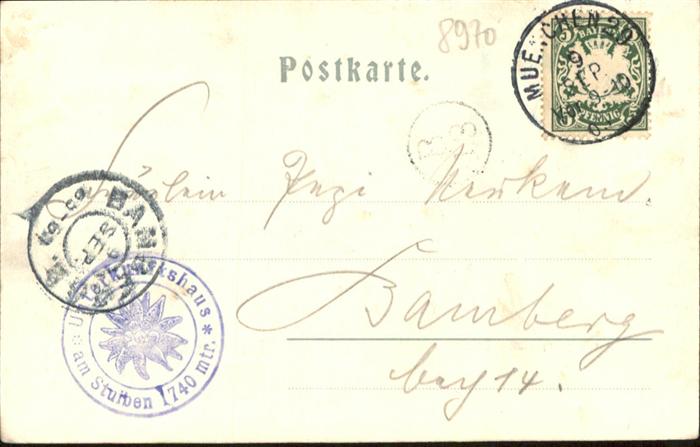 8970
Postkarte.
MUENCHEN 29
9 SEP
BAYERN
5 PFENNIG 5
B
Fräulein Pepi
Bamberg
bay 14.
BAMBERG
9 SEP
Unterkunftshaus
am Stuiben 1740 mtr.